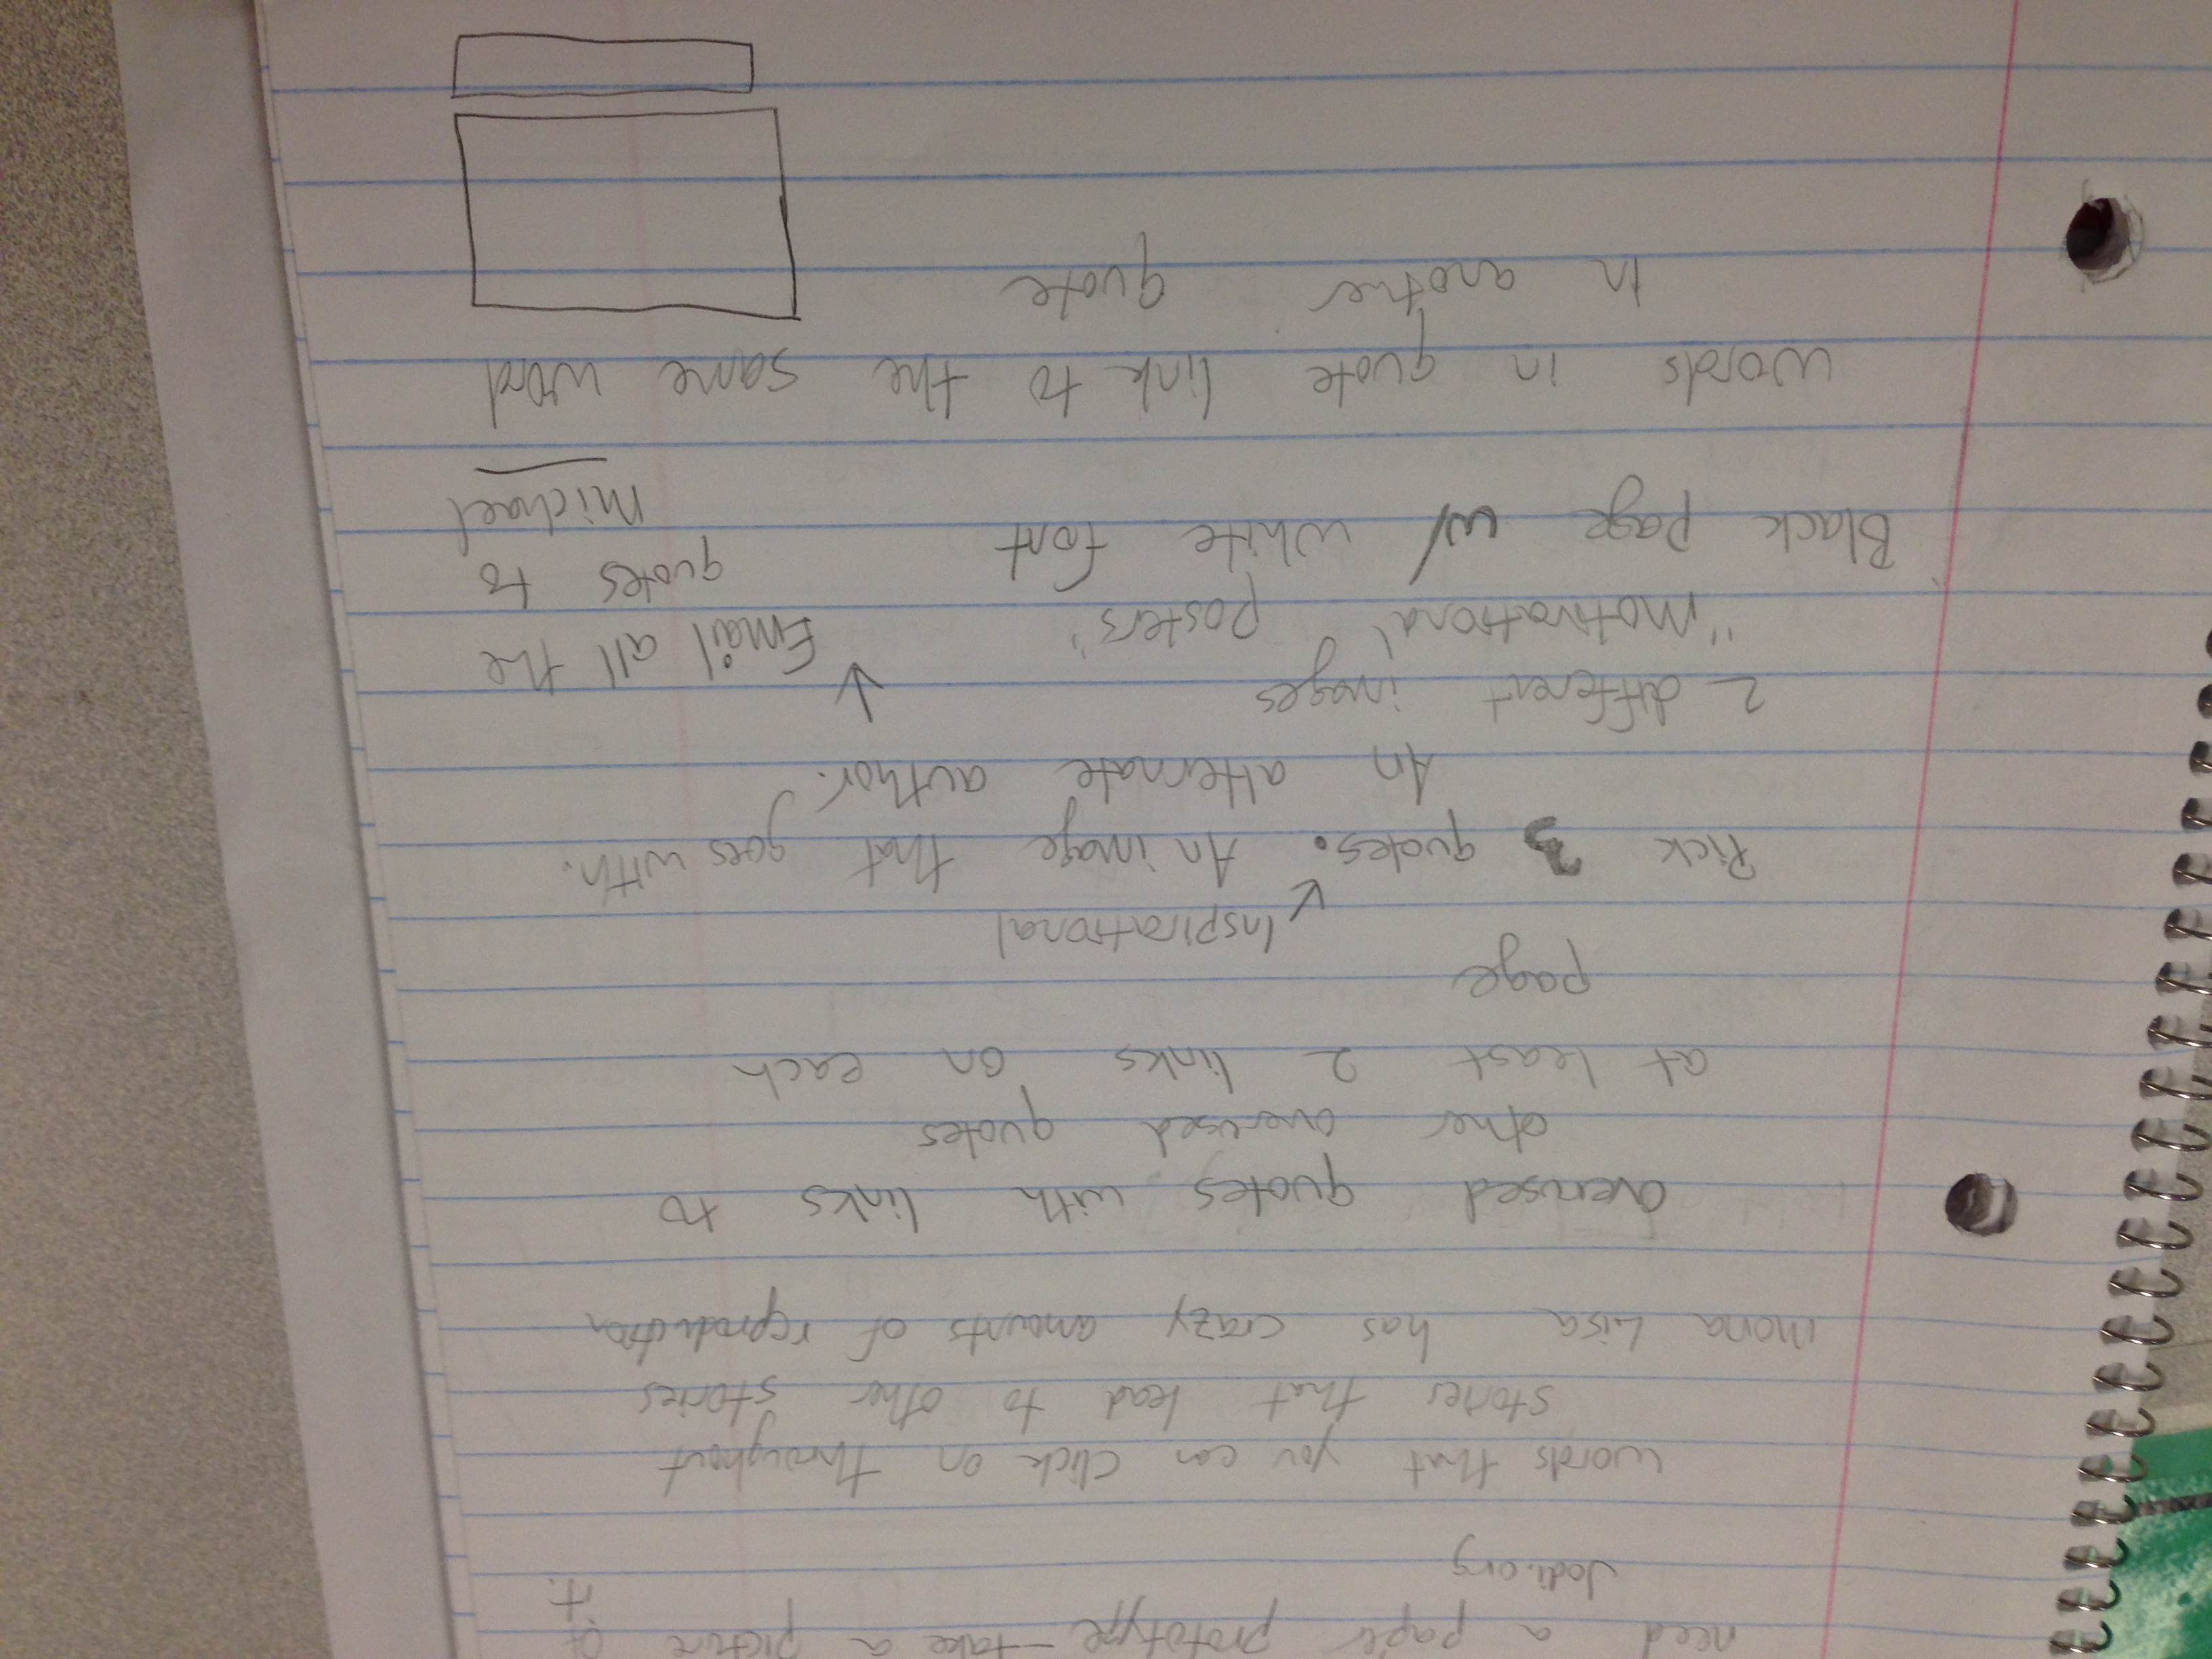 need a paper prototype - take a picture of
it.
Jodi.org
words that you can click on throughout
stories that lead to other stories
mona Lisa has crazy amounts of reproduction
overused quotes with links to
other overused quotes
at least 2 links on each
page
Inspirational
Pick 3 quotes. An image that goes with.
An alternate author.
2 different images
"motivational posters"
Email all the
quotes to
michael
Black page w/ white font
words in quote link to the same word
in another quote